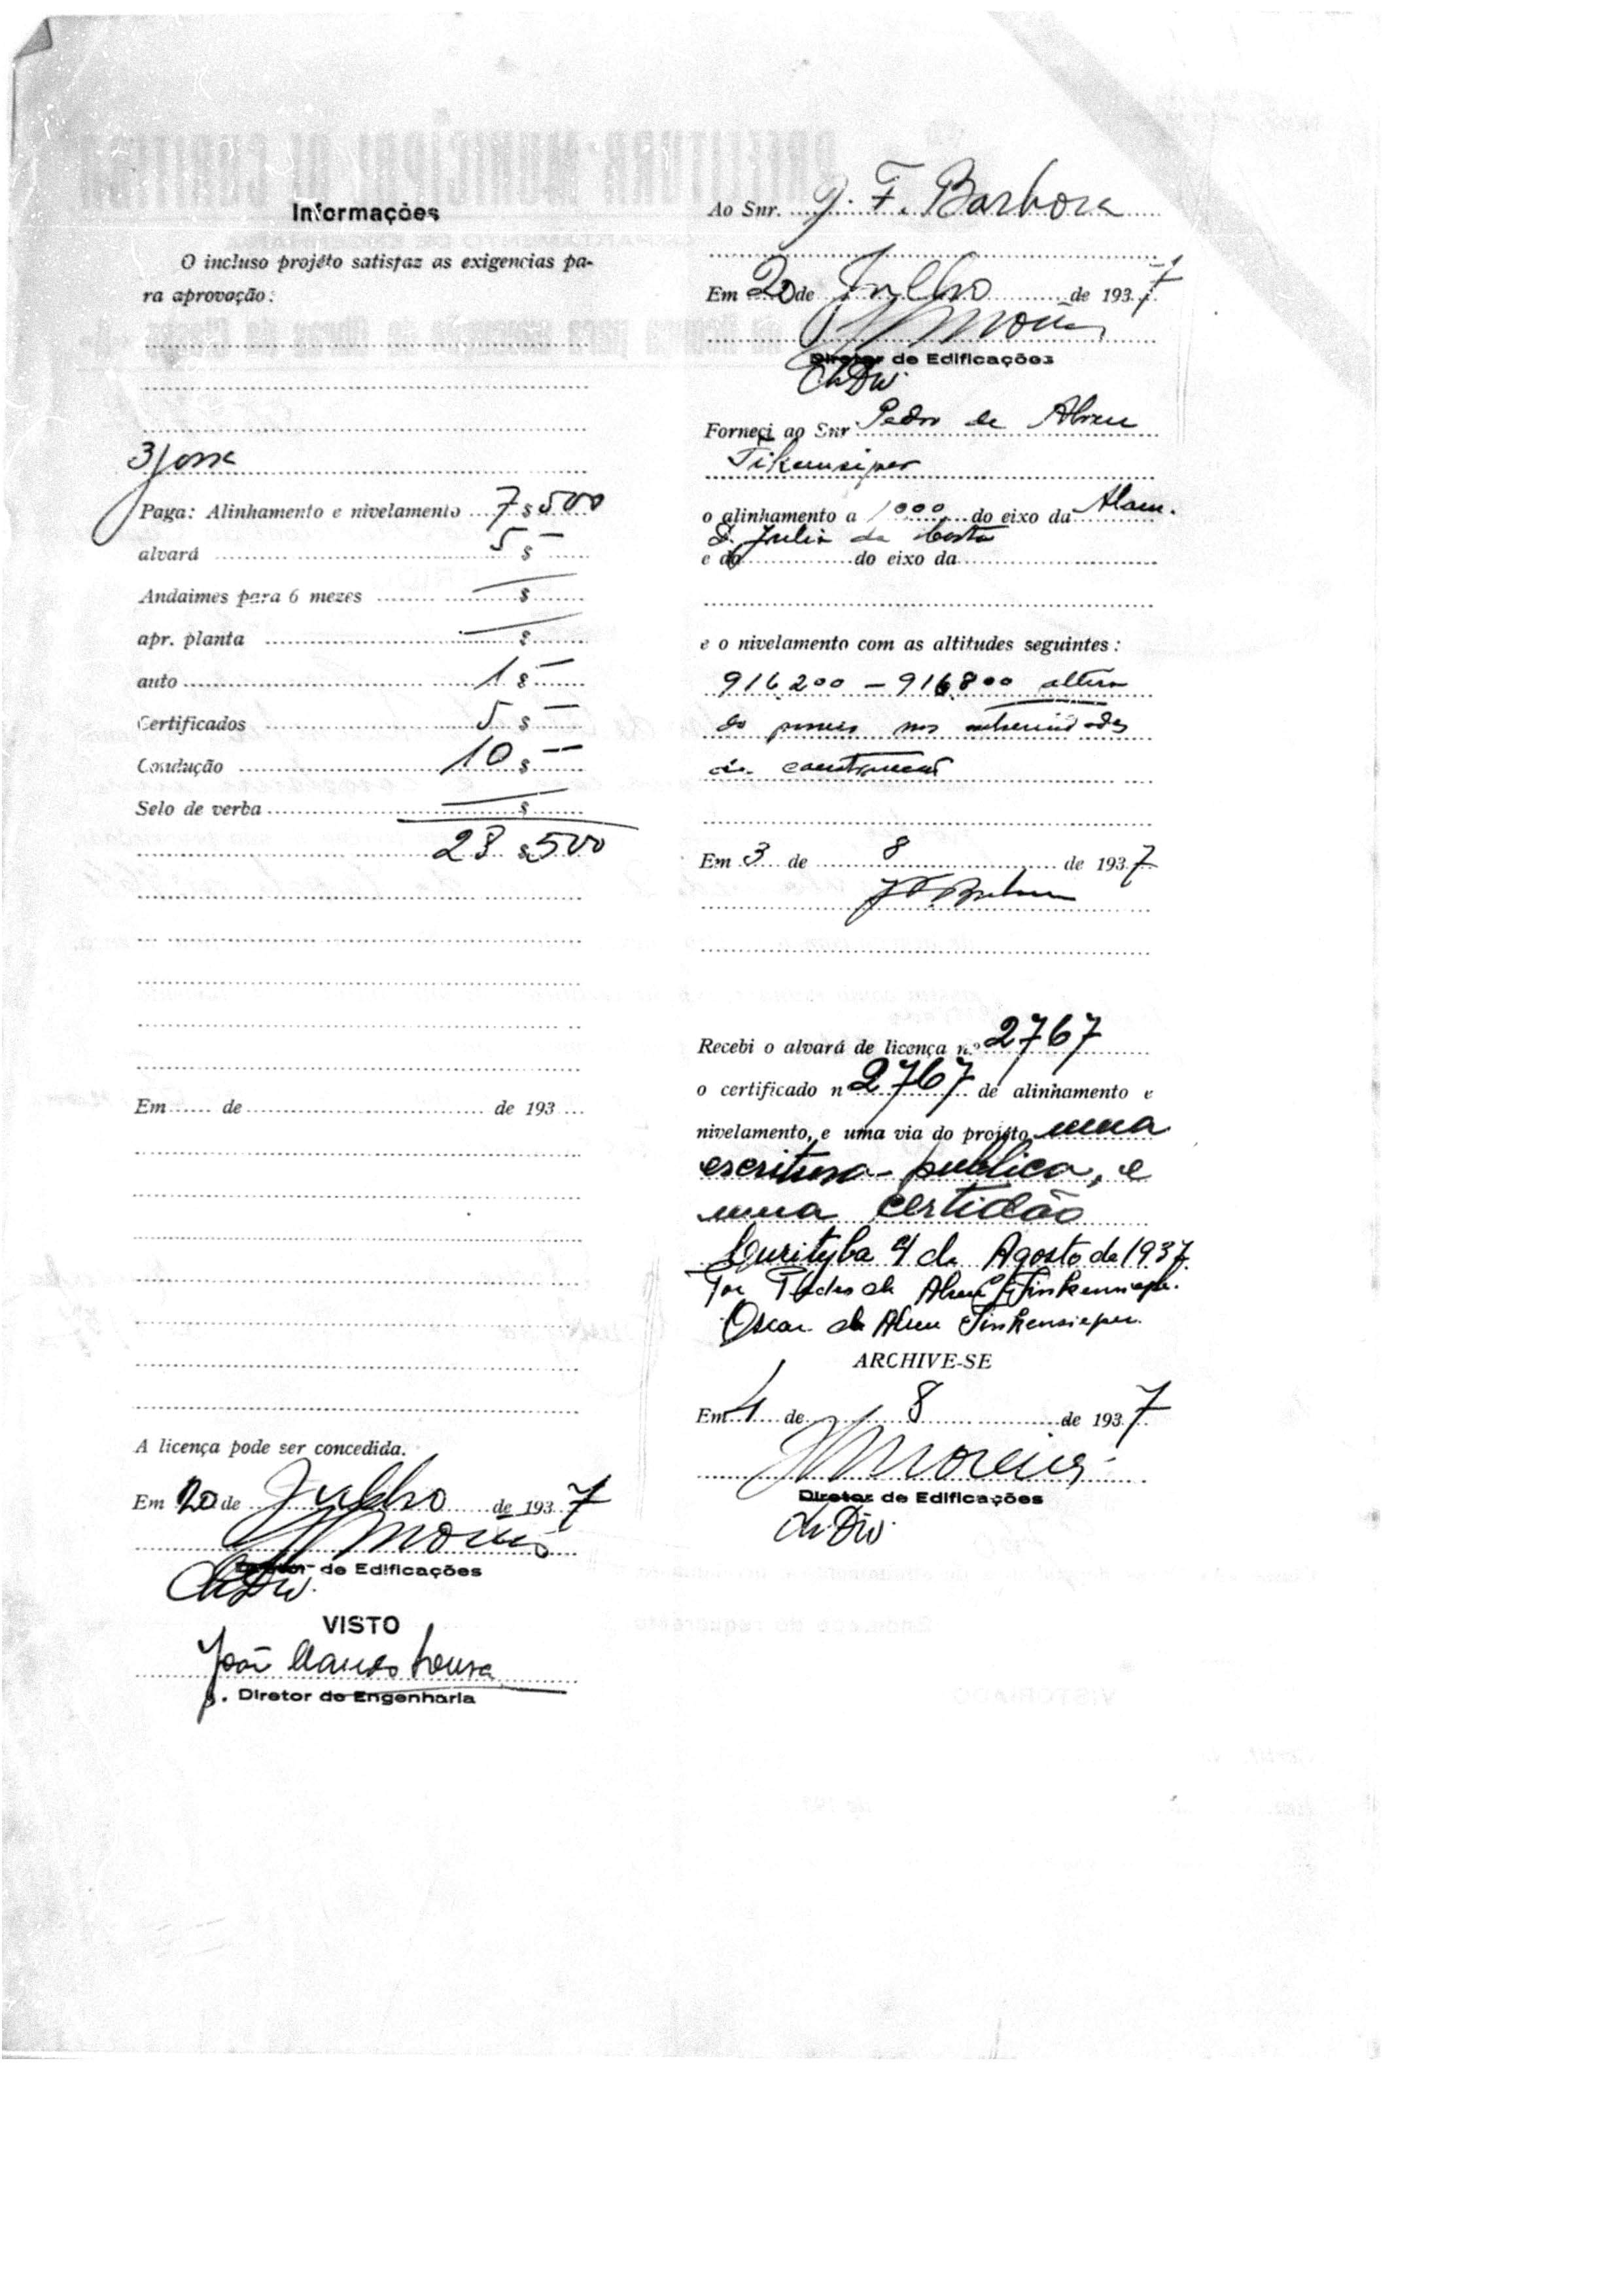 Informações
O incluso projéto satisfaz as exigencias pa-
ra aprovação:
Paga: Alinhamento e nivelamento 7$500
alvará 5$—
Andaimes para 6 mezes —$
apr. planta —$
auto 1$—
Certificados 5$—
Condução 10$—
Selo de verba —$
28$500
Em de de 193
A licença pode ser concedida.
Em 20 de Julho de 1937
de Edificações
VISTO
João
p. Diretor de Engenharia
Ao Snr. J. F. Barbosa
Em 20 de Julho de 1937
Diretor de Edificações
Ch Div.
Forneçi ao Snr Pedro de Abreu
o alinhamento a 1000 do eixo da Alam.
D. Julia da Costa
e do do eixo da
e o nivelamento com as altitudes seguintes:
916.200 — 916.800 altura
do nas
da construcção
Em 3 de 8 de 1937
Recebi o alvará de licença n.º 2767
o certificado n 2767 de alinhamento e
nivelamento, e uma via do projéto, uma
escritura publica, e
uma certidão
Curityba 4 de Agosto de 1937.
Por de Abreu
Oscar de Abreu Tinkensieper.
ARCHIVE-SE
Em 4 de 8 de 1937
Moreira
Diretor de Edificações
Ch. Div.